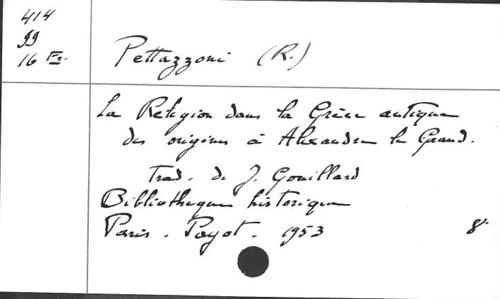 414
99
16 Fr.
Pettazzoni (R.)
La Religion dans la Grèce antique
des origines à Alexandre le Grand.
Trad. de J. Gouillard
Bibliotheque historique
Paris. Payot. 1953 8°